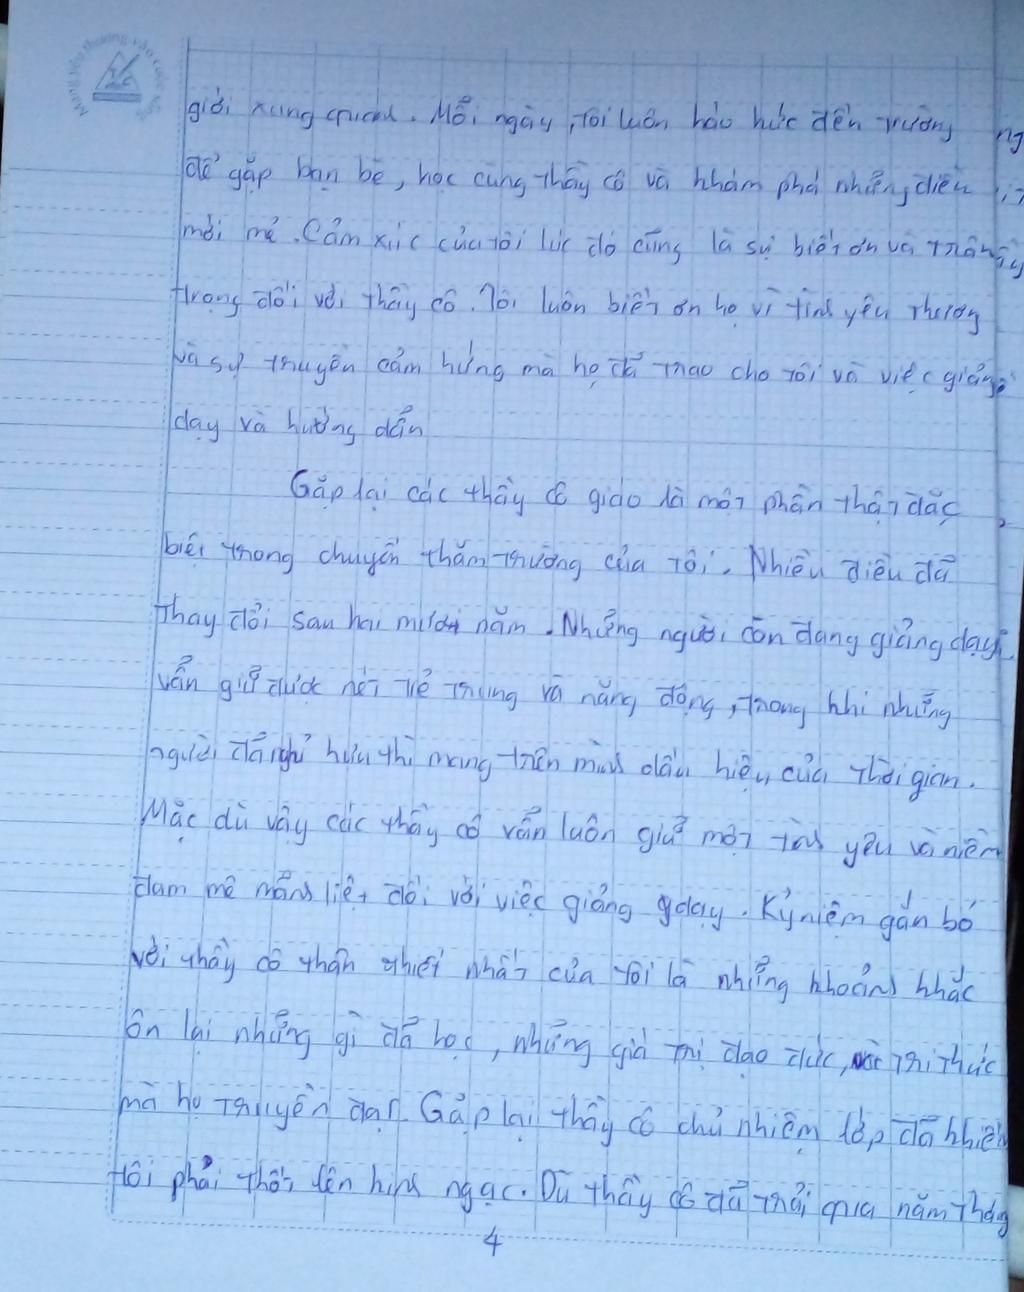 giới xung quanh. Mỗi ngày, tôi luôn háo hức đến trường
để gặp bạn bè, học cùng thầy cô và khám phá những điều
mới mẻ. Cảm xúc của tôi lúc đó cũng là sự biết ơn và trân
trọng đối với thầy cô. Tôi luôn biết ơn họ vì tình yêu thương
và sự truyền cảm hứng mà họ đã trao cho tôi và việc giảng
dạy và hướng dẫn
Gặp lại các thầy cô giáo là một phần thật đặc
biệt trong chuyến thăm trường của tôi. Nhiều điều đã
thay đổi sau hai mươi năm. Những người còn đang giảng dạy
vẫn giữ được nét trẻ trung và năng động, trong khi những
người đã nghỉ hưu thì mang trên mình dấu hiệu của thời gian.
Mặc dù vậy các thầy cô vẫn luôn giữ một tình yêu và niềm
đam mê mãnh liệt đối với việc giảng dạy. Kỷ niệm gắn bó
với thầy cô thân thiết nhất của tôi là những khoảnh khắc
ôn lại những gì đã học, những giá trị đạo đức, tri thức
mà họ truyền đạt. Gặp lại thầy cô chủ nhiệm lớp, đã khiến
tôi phải thốt lên kinh ngạc. Dù thầy cô đã trải qua năm tháng
4